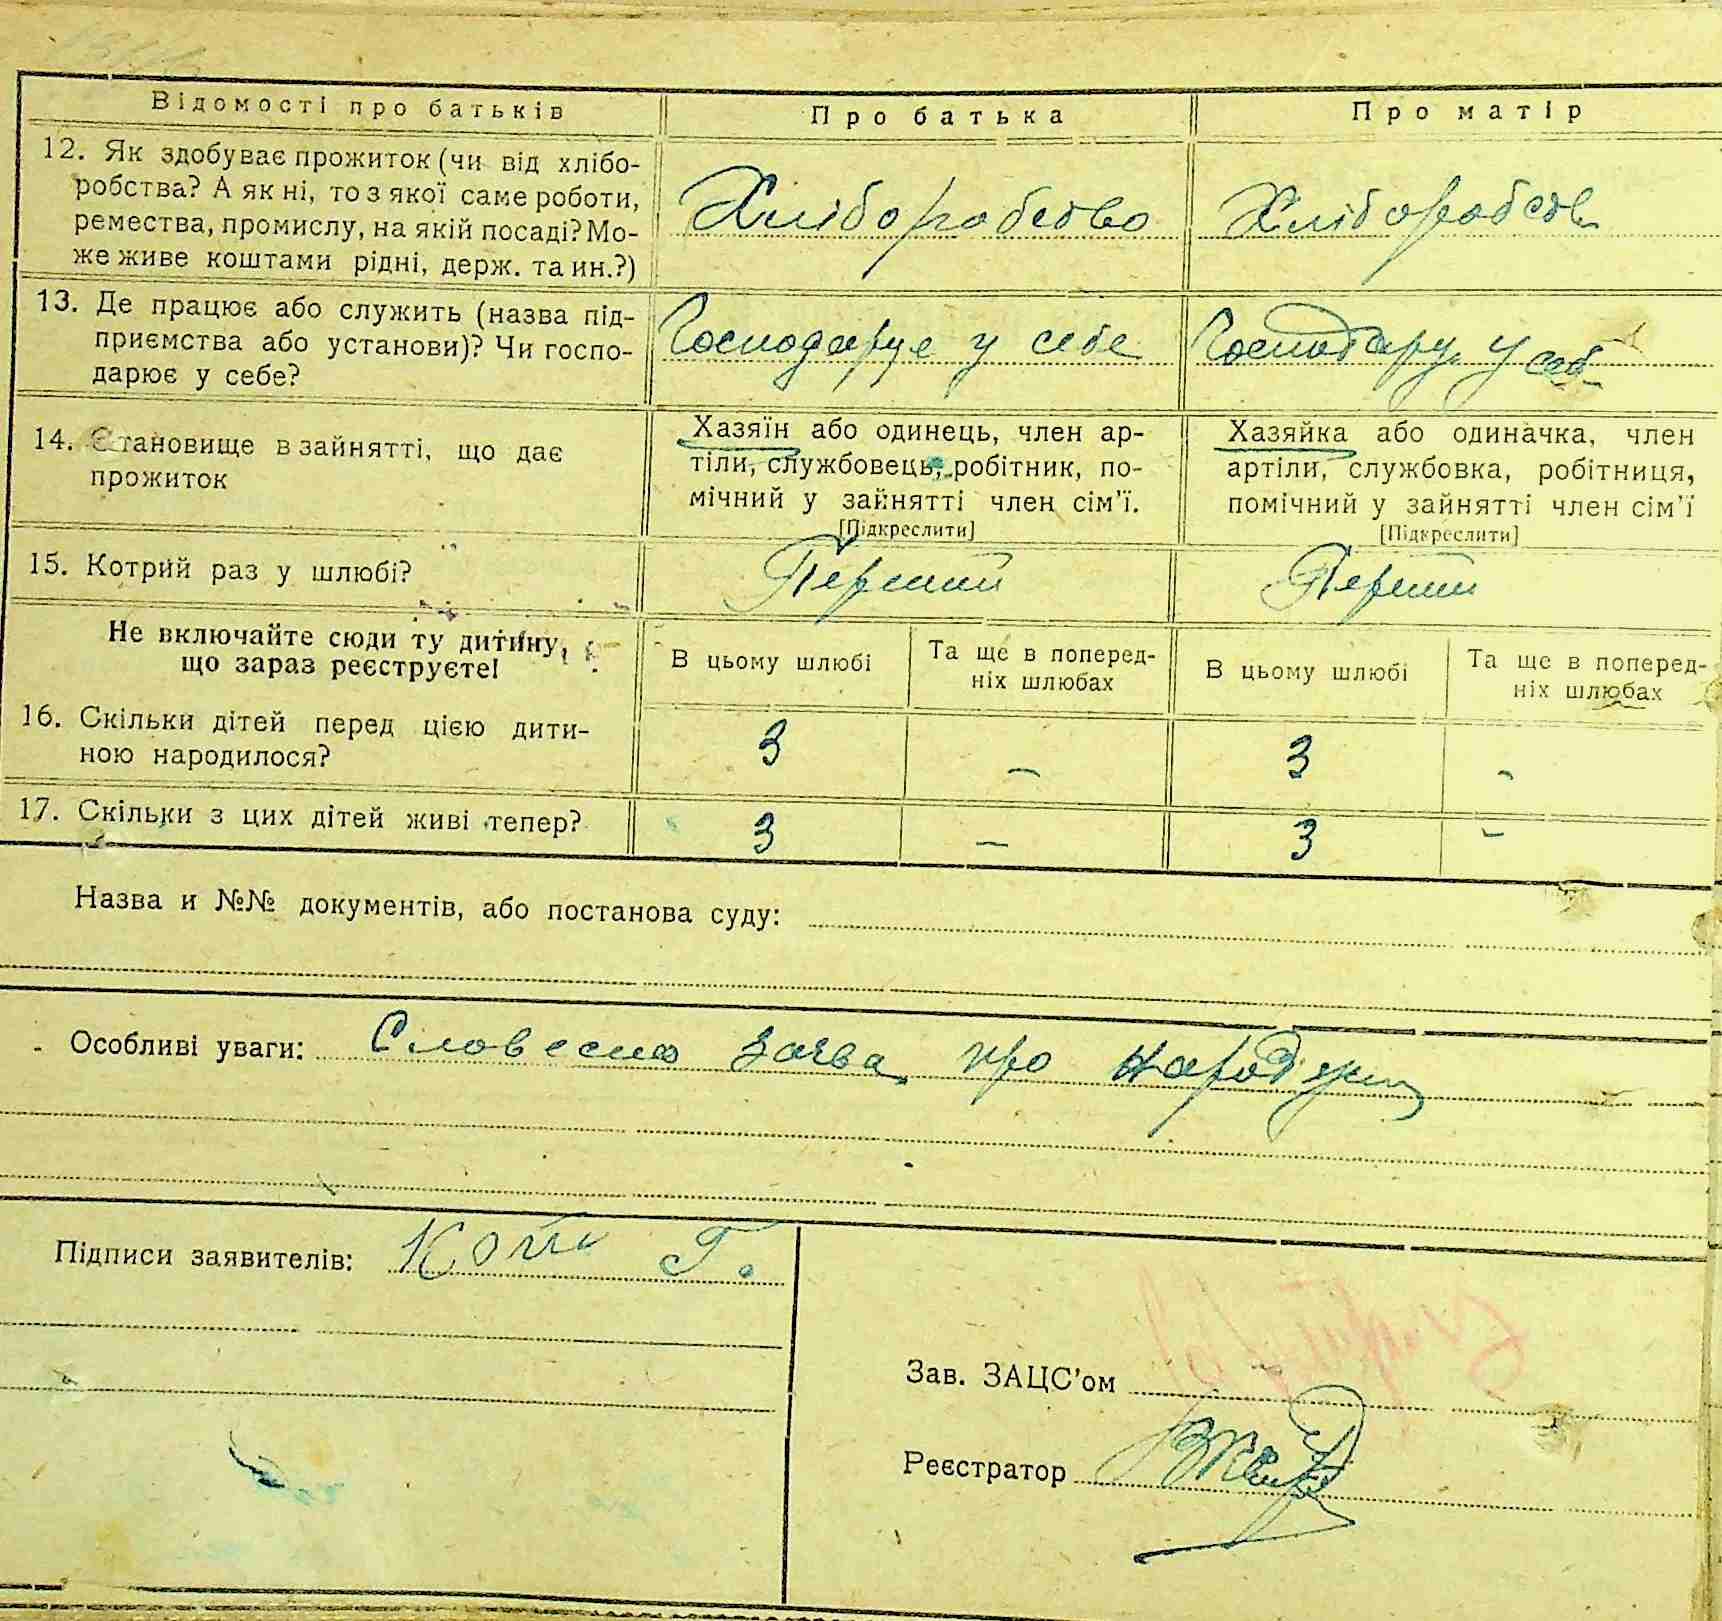 Відомості про батьків
Про батька
Про матір
12. Як здобуває прожиток (чи від хлібо-
робства? А як ні, то з якої саме роботи,
ремества, промислу, на якій посаді? Мо-
же живе коштами рідні, держ. та ин.?)
Хліборобство
Хліборобств
13. Де працює або служить (назва під-
приємства або установи)? Чи госпо-
дарює у себе?
Господарує у себе
Господарує у себе
14. Становище в зайнятті, що дає
прожиток
Хазяїн або одинець, член ар-
тіли, службовець, робітник, по-
мічний у зайнятті член сім'ї.
[Підкреслити]
Хазяйка або одиначка, член
артіли, службовка, робітниця,
помічний у зайнятті член сім'ї
[Підкреслити]
15. Котрий раз у шлюбі?
Перший
Перший
Не включайте сюди ту дитину,
що зараз реєструєте!
В цьому шлюбі
Та ще в поперед-
ніх шлюбах
В цьому шлюбі
Та ще в поперед-
ніх шлюбах
16. Скільки дітей перед цією дити-
ною народилося?
3 – 3 –
17. Скільки з цих дітей живі тепер?
3 – 3 –
Назва и №№ документів, або постанова суду:
Особливі уваги: Словесна заява про народжен
Підписи заявителів: Г.
Зав. ЗАЦС'ом
Реєстратор